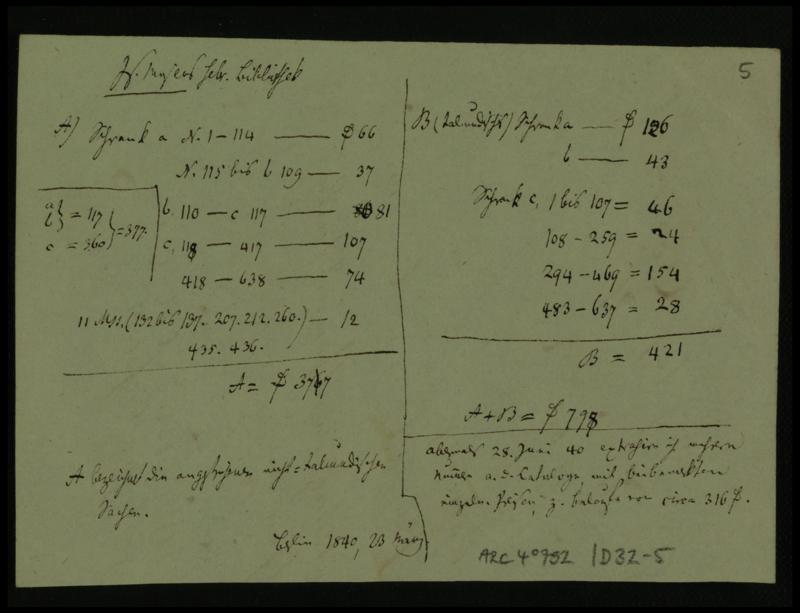 5
hebr. Bibliothek
A) Schrank a N. 1 – 114 — 66
N. 115 bis b 109 — 37
a
b } = 117
c = 360 } = 377.
b. 110 – c 117 — 81
c, 118 – 417 — 107
418 – 638 — 74
11 Mss. (132 bis 137. 207. 212. 260.) — 12
435. 436.
A = 377
A bezeichnet die nicht-talmudischen
Sachen.
Berlin 1840, 23 März.
B (talmudische) Schrank a — 126
b — 43
Schrank c, 1 bis 107 = 46
108 – 259 = 24
294 – 469 = 154
483 – 637 = 28
B = 421
A + B = 798
abermals 28. Juni 40 extrahire ich mehrere
Nummern a. d. Cataloge, mit beibemerkten
einzelnen Preisen, z. Belaufe von circa 316
ARC 4°792 / D32-5